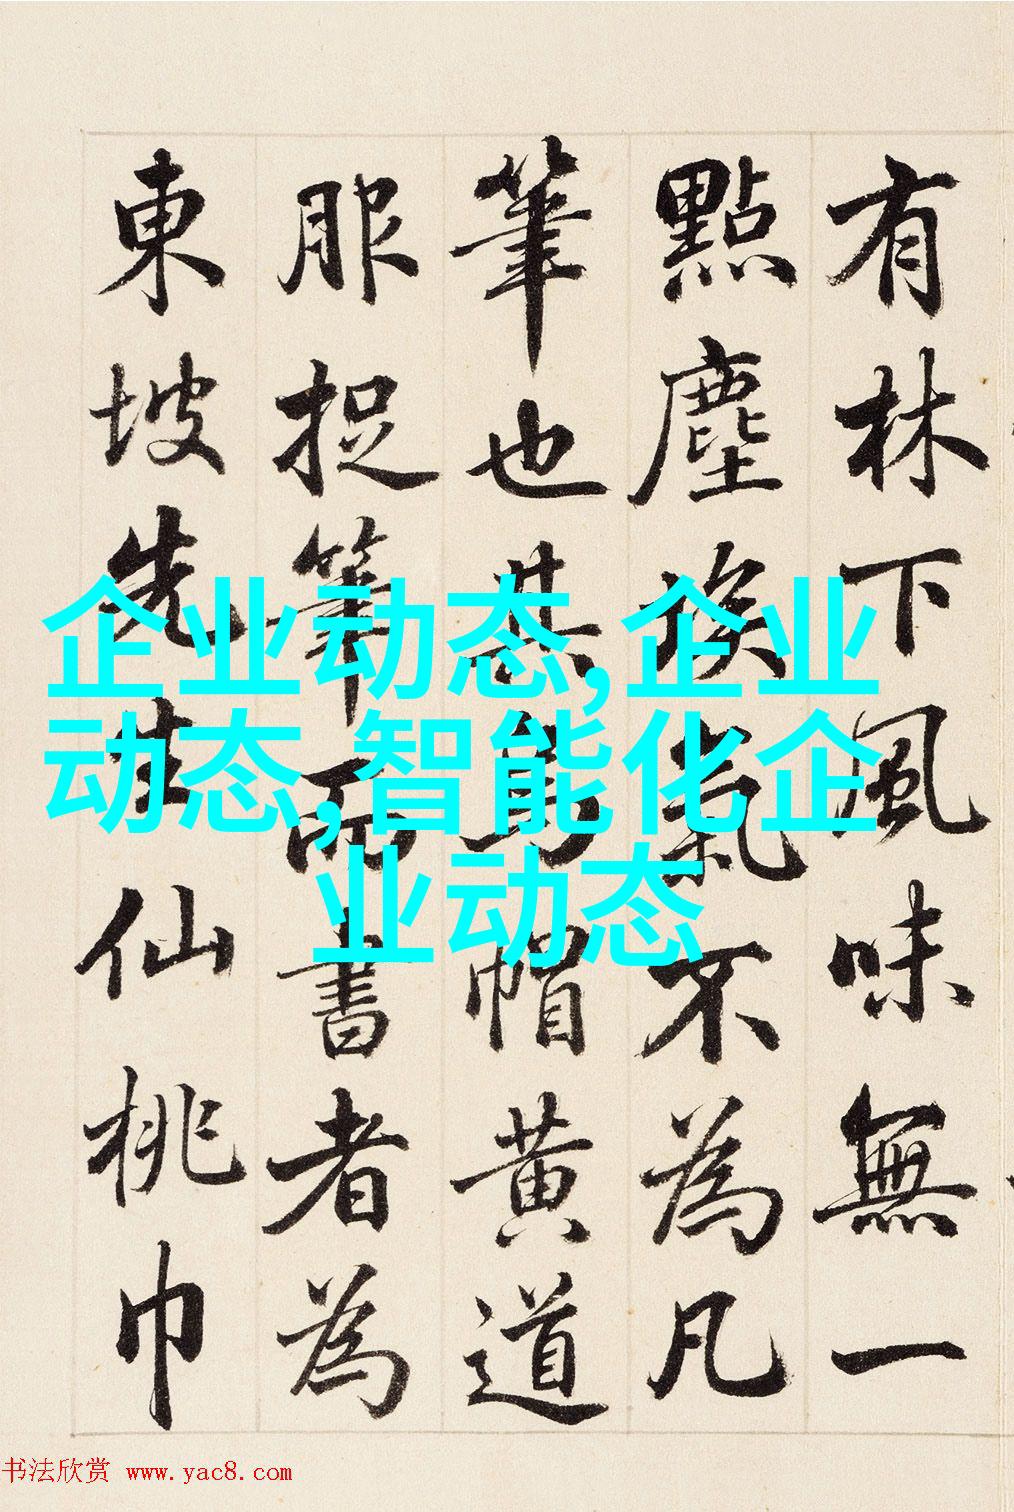 有林下風味無一
點塵埃氣不為凡
筆也其烏帽黃道
服捉筆而書者為
東坡先生仙桃巾
企业动态,企业
动态,智能化企
业动态
书法欣赏 www.yac8.com